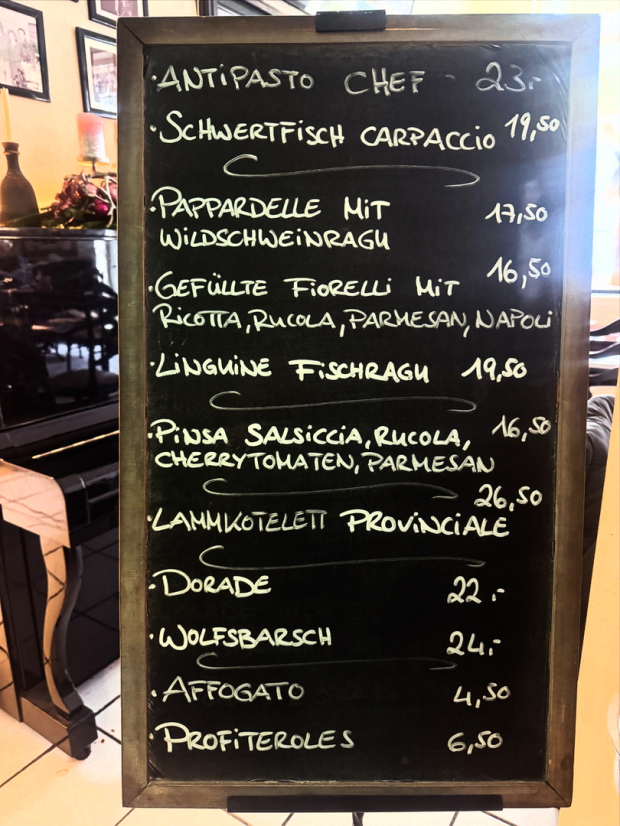 ·ANTIPASTO CHEF - 23.-
·SCHWERTFISCH CARPACCIO 19,50
·PAPPARDELLE MIT 17,50
WILDSCHWEINRAGU
16,50
·GEFÜLLTE FIORELLI MIT
RICOTTA, RUCOLA, PARMESAN, NAPOLI
·LINGUINE FISCHRAGU 19,50
·PINSA SALSICCIA, RUCOLA, 16,50
CHERRYTOMATEN, PARMESAN
26,50
·LAMMKOTELETT PROVINCIALE
·DORADE 22.-
·WOLFSBARSCH 24.-
·AFFOGATO 4,50
·PROFITEROLES 6,50